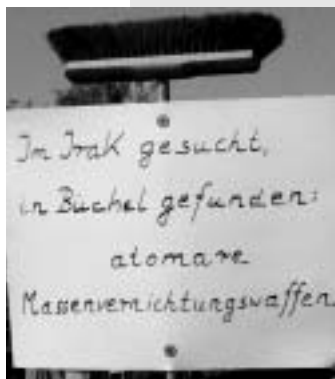 Im Irak gesucht,
in Büchel gefunden:
atomare
Massenvernichtungswaffen